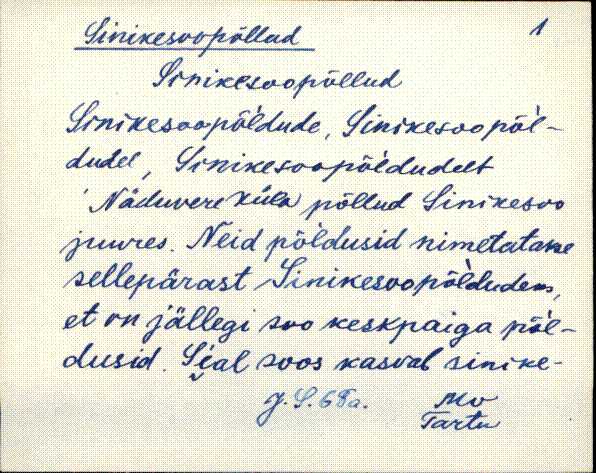 Sinikesoopõllud 1
Sinikesoopõllud
Sinikesoopõldude, Sinikesoopõl-
dudel, Sinikesoopõldudelt
Näduvere küla põllud Sinikesoo
juures. Neid põldusid nimetatakse
sellepärast Sinikesoopõldudeks,
et on jällegi soo keskpaiga põl-
dusid. Seal soos kasvab sinike-
J.S.68a.
Tartu